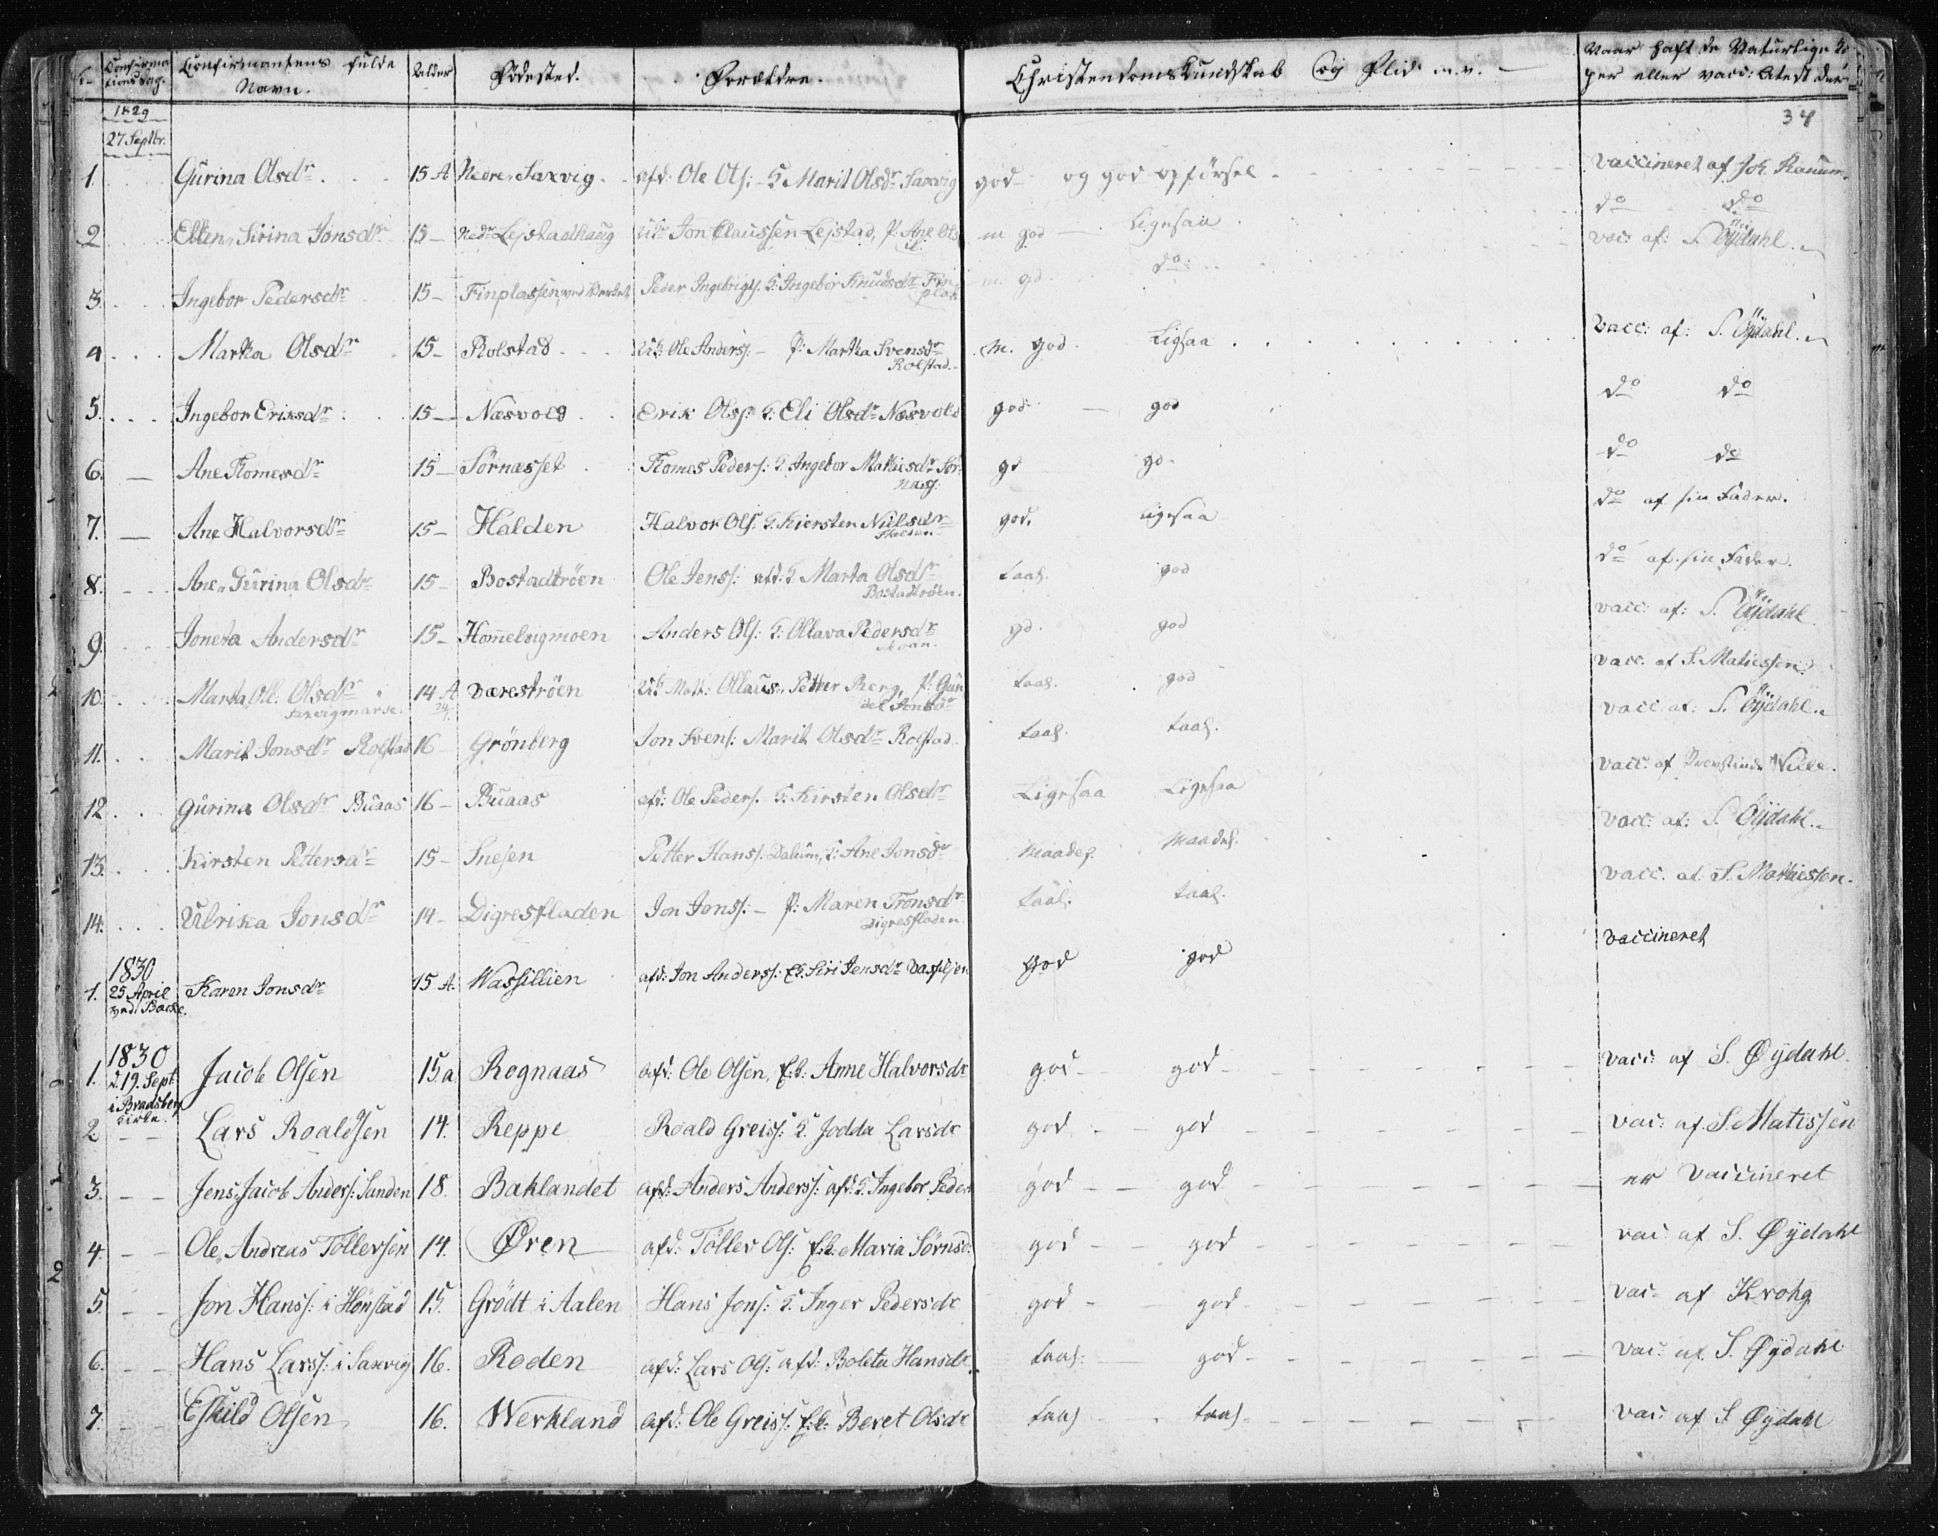 Confirmationsdag. Confirmantens fulde Navn. Alder Födested. Forældre. Christendoms Kundskab og Flid m.v. Naar haft de Naturlige Kopper eller vacc: Atest der
1829
27 Septbr. 34
1. Gurina Olsdr 15 A Nedre Saxvig afd: Ole Ols: - E Marit Olsdr Saxvig god og god opförsel vaccineret af Joh. Ranum
2 Ellen Sirina Jonsdr 15 Nedr Lejstadhaug Uæ: Jon Claussen Lejstad, P: Ane Ols m god Ligesaa do do
3. Ingebor Pedersdr 15 Finplassen ved Værket Peder Ingebrigts. E: Ingebor Knudsdt m. gd. do: vac: af: S. Öydahl
4 Marta Olsdr 15 Rolstad Uæ: Ole Anders: - P: Marta Svensdr Rolstad. m. god Ligsaa vacc: af: S. Öydahl
5. Ingebor Eriksdr 15 Næsvold Erik Ols: E: Eli Olsdr Næsvold god god do do
6. Ane Tomesdr 15 Sörnæsset Tomes Peders: E. Ingebor Matiesdr Sör næs: gd gd do do
7. Ane Halvorsdr 15 Halden Halvor Ols: E. Kiersten Nielsdr Halden god. Ligesaa do af sin Fader.
8. Ane Gurina Olsdr 15 Bostadtröen Ole Jens: afd: E Marta Olsdr Bostadtröen. taal. god do af sin Fader.
9. Joneta Andersdr 15 Hommelsigmoen Anders Ols: E: Ollava Pedersdr Moan. gd. god vacc: af: S. Öydahl
10. Marta Oll. Olsdr Saxvigmarke 14 A Væreströen Uæ Mott: Ollaus Petter Berg, P: Gundel Jonsdr taal. god vacc. af S. Matiessen
11. Marit Jonsdr Rolstad 16 Grönberg Jon Svens: Marit Olsdr Rolstad taal. taal. vacc af: S. Öydahl
12 Gurina Olsdr Buaas 16 Buaas afd: Ole Peders - E: Kirsten Olsdr Ligesaa Ligesaa vacc. af Provstinde
13. Kirsten Pettersdr 15 Snesen Petter Hans: Dalum, E: Ane Jonsdr Maadel. Maadel. vacc: af: S. Öydahl
14. Ulrika Jonsdr 14 Digresfladen Jon Jons: - P: Maren Tronsdr Digresfladen. taal. taal. vacc. af S. Mathiessen.
1. 1830 25 April ved Bakke. Karen Jonsdr 15 A. Wassillien afd: Jon Anders: E: Siri Jensdr Vassilien god god vaccineret
1. 1830 d 19. Sept i Bradsberg Kirke. Jacob Olsen 15 a Rognaas afd: Ole Olsen, E.E: Anne Halvorsdr god god vacc: af S. Øydahl.
2 Lars Roaldsen 14. Reppe Roald Greis: E. Jodda Larsdr god god vac: af S. Matissen
3. Jens Jacob Anders: Sanden 18. Baklandet afd: Anders Anders: afd: E. Ingebor Peders god god er Vaccineret
4. Ole Andreas Tollersen 14. Øren afd: Töller Ols: E.E: Maria Sörnsd: god god vac: af S. Øydahl
5. Jon Hans: i Hönstad 15. Grödt i Aalen Hans Jons: E. Inger Pedersdr god god vac: af Krohg
6. Hans Lars: i Saxvig 16. Roden afd: Lars Ols: afd: Boleta Hansdr. taal. god vac: af S. Øydahl
7. Eskild Olsen 16. Werkland afd: Ole Greis: E.E: Beret Olsdr taal. taal. vac: af S Øydahl